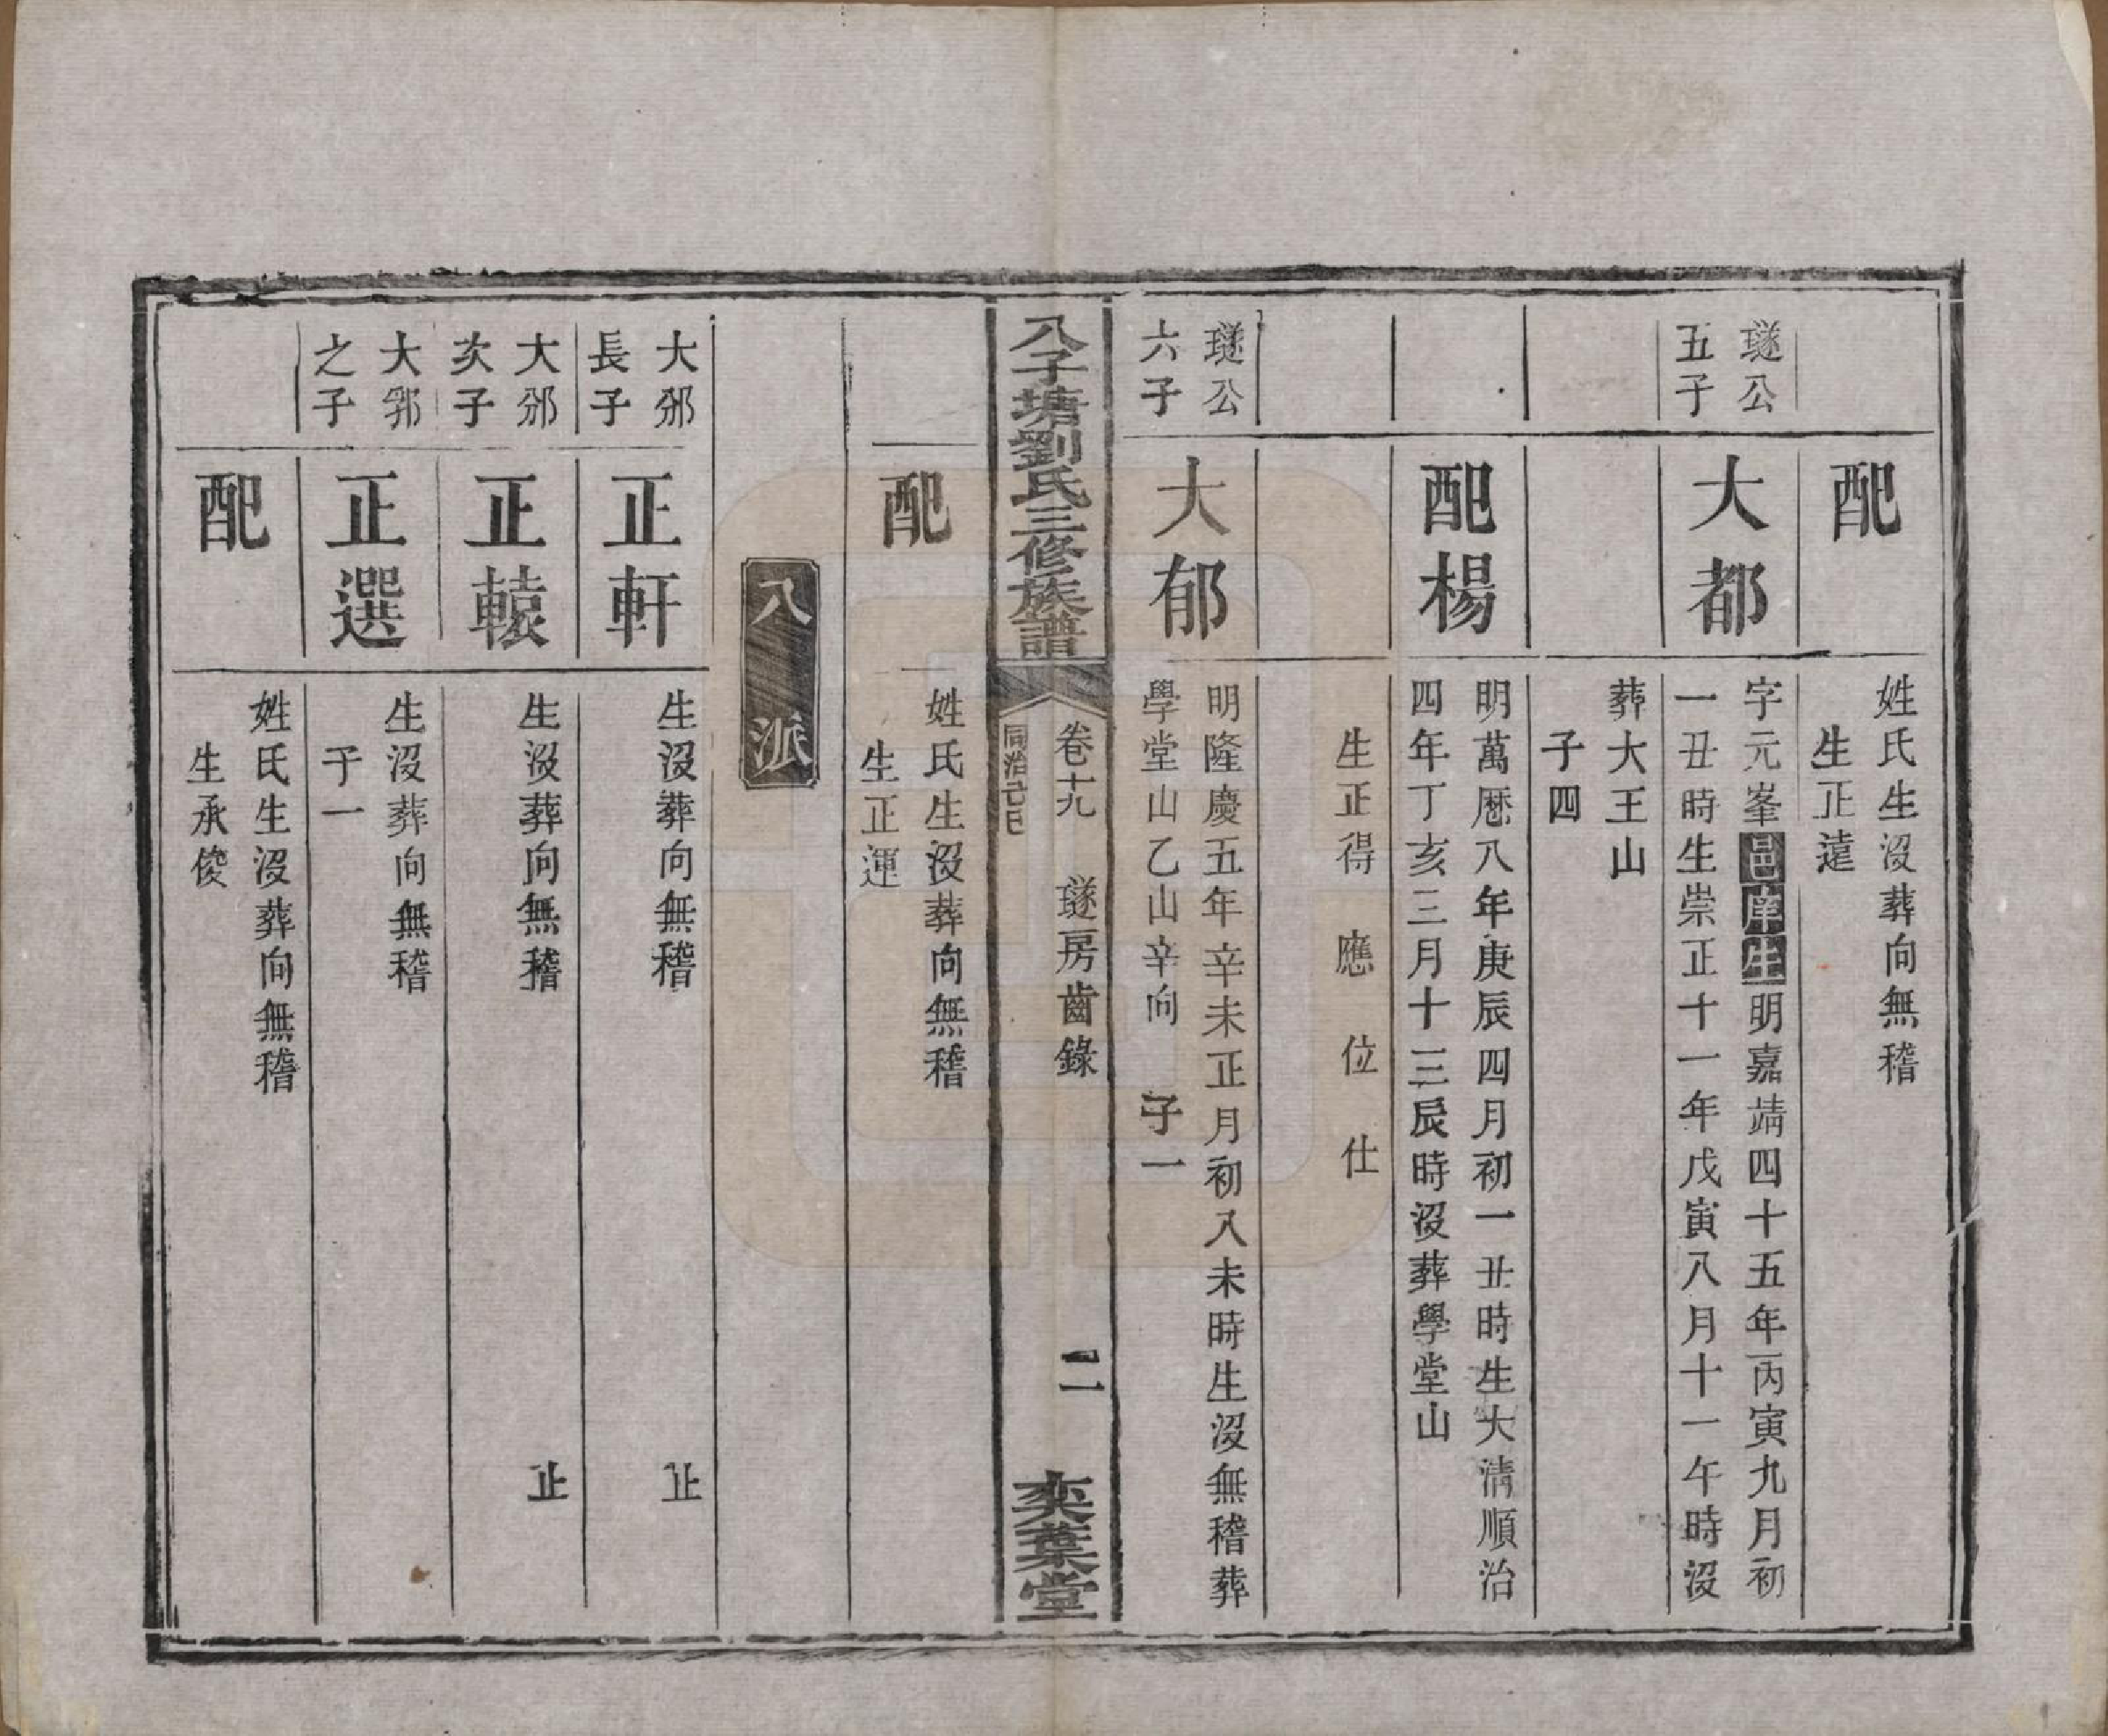 配
姓氏生沒葬向無稽
生正遠
璲公
五子
大都
字元峯邑庠生明嘉靖四十五年丙寅九月初
一丑時生崇正十一年戊寅八月十一午時沒
葬大王山
子四
配楊
明萬厯八年庚辰四月初一丑時生大清順治
四年丁亥三月十三辰時沒葬學堂山
生正得 應 位 仕
璲公
六子
大郁
明隆慶五年辛未正月初八未時生沒無稽葬
學堂山乙山辛向 子一
八子塘劉氏三修族譜
卷十九 璲房齒錄
同治己巳
二
奕葉堂
配
姓氏生沒葬向無稽
生正運
八派
大邠
長子
正軒
生沒葬向無稽 止
大邠
次子
正轅
生沒葬向無稽 止
大郛
之子
正選
生沒葬向無稽
子一
配
姓氏生沒葬向無稽
生承俊